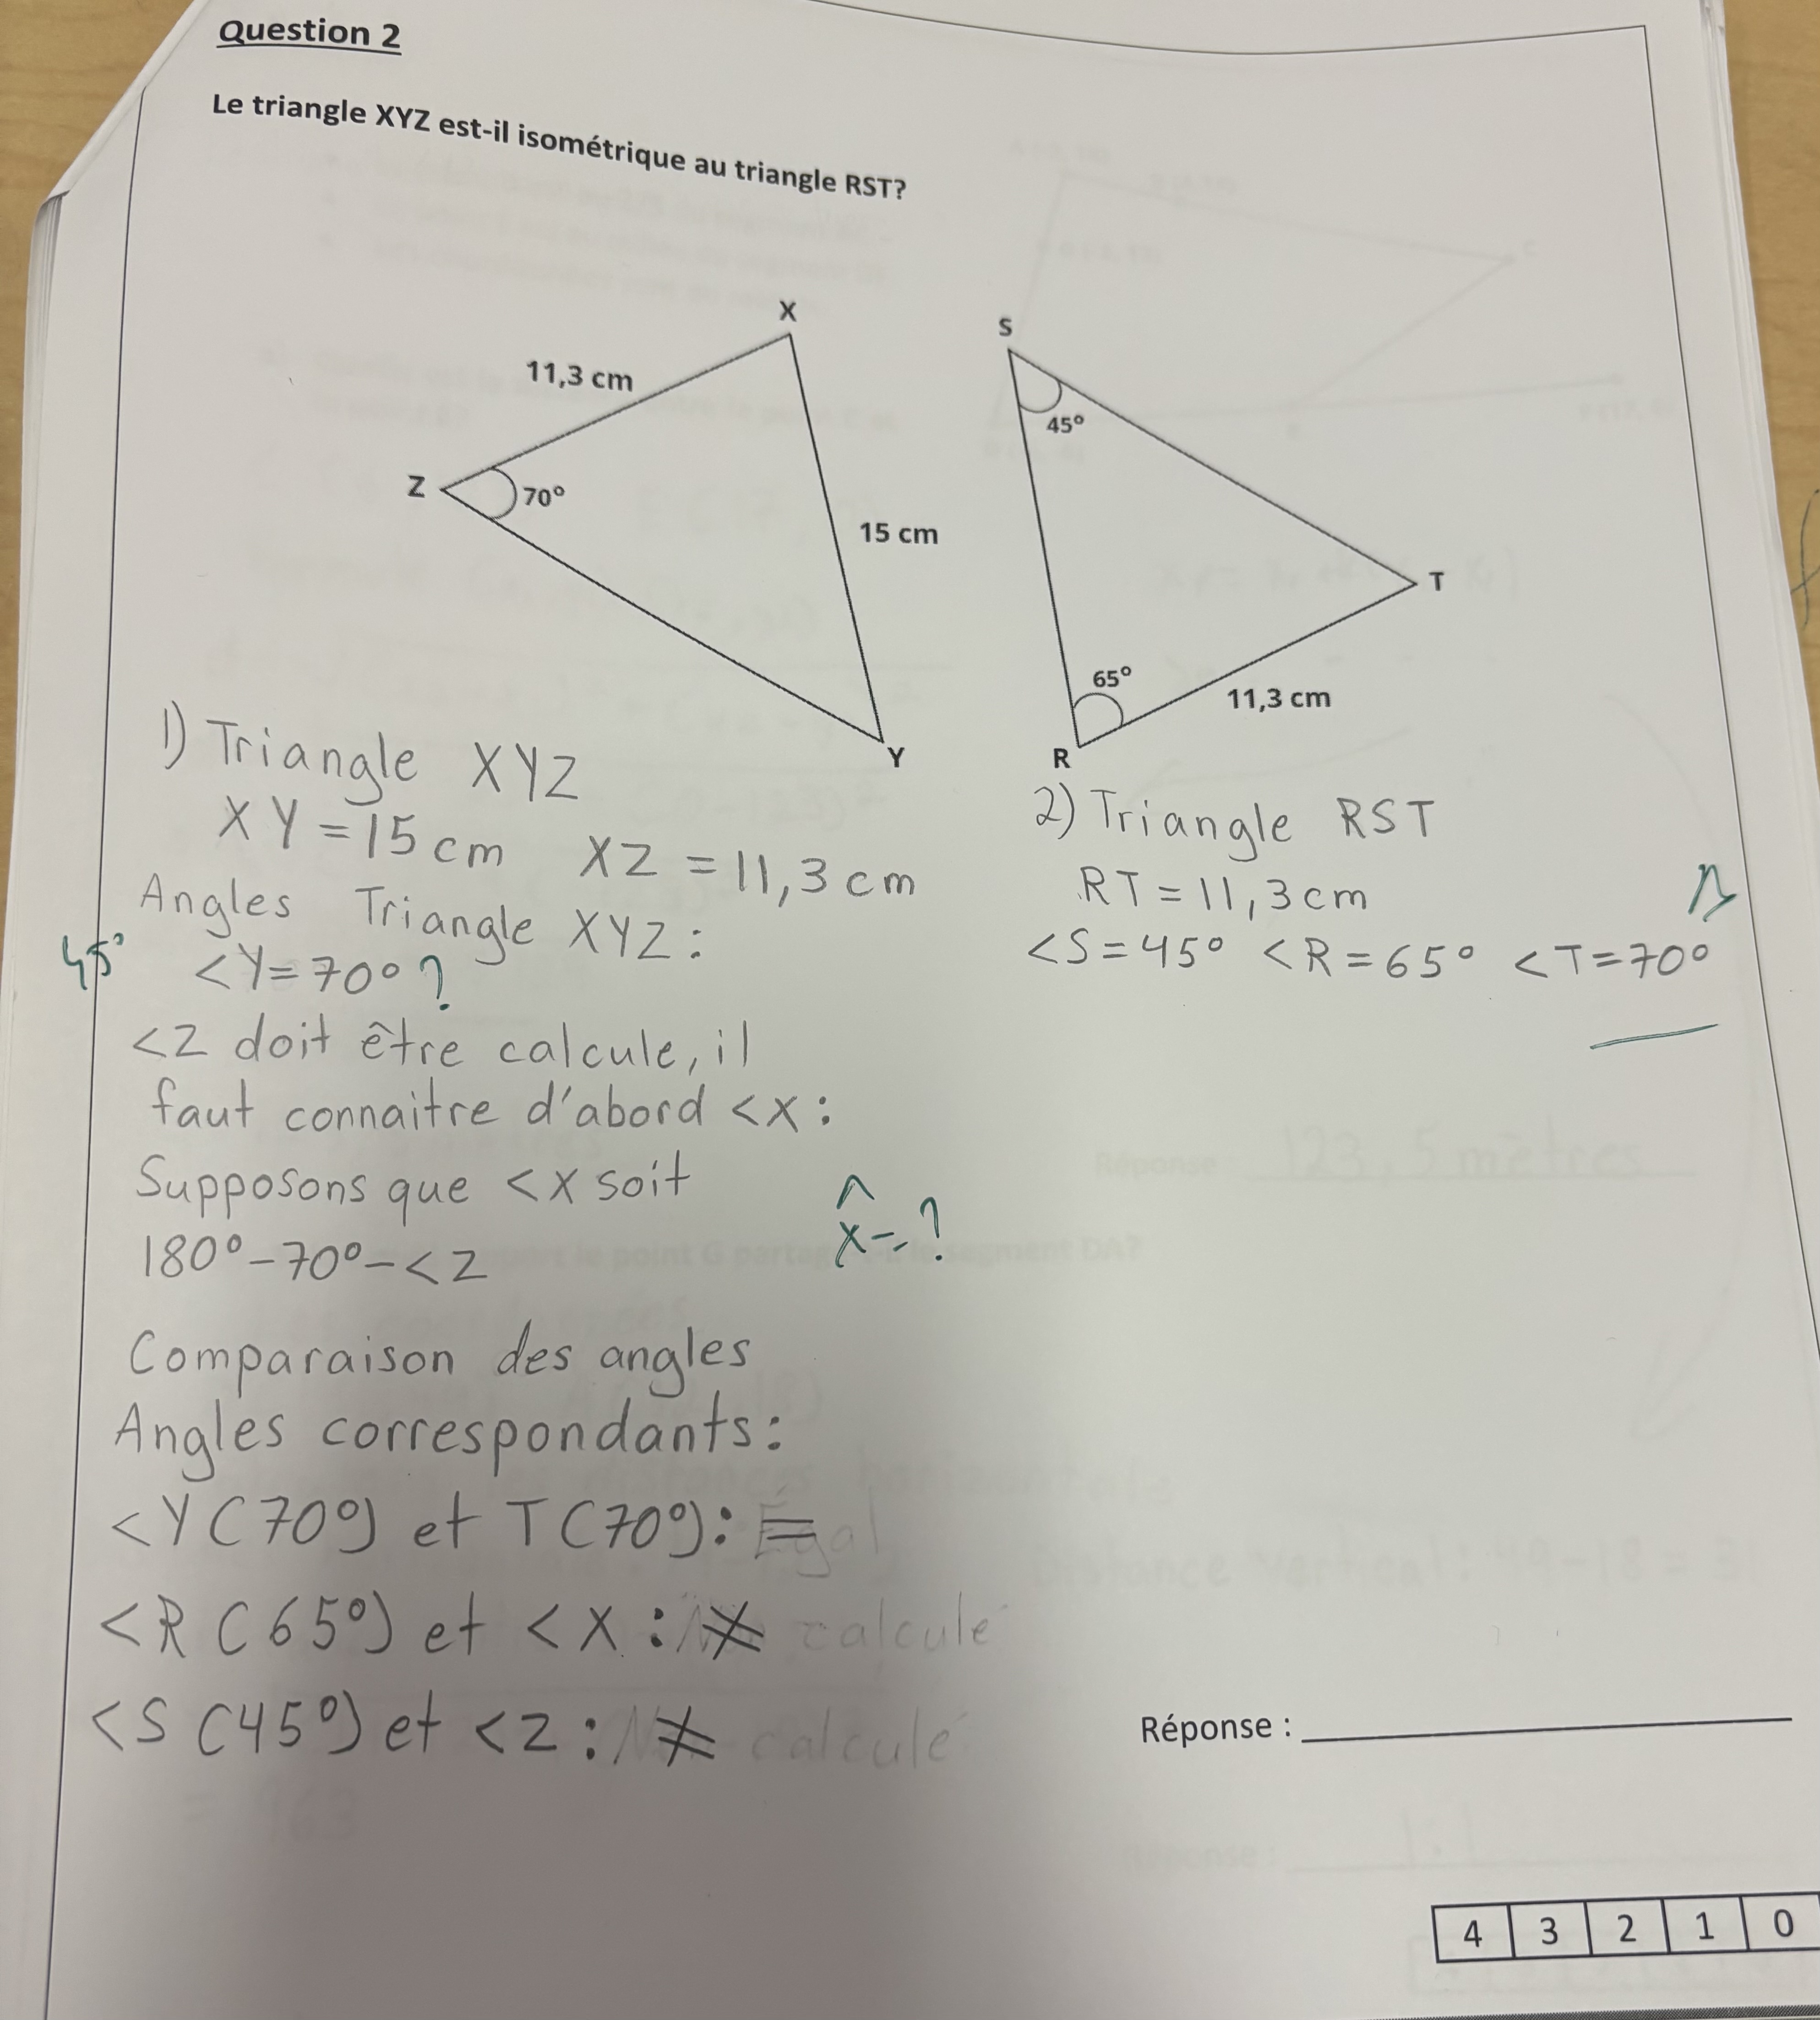 Question 2
Le triangle XYZ est-il isométrique au triangle RST?
X
11,3 cm
Z
70°
15 cm
Y
S
45°
T
65°
11,3 cm
R
1) Triangle XYZ
XY = 15 cm XZ = 11,3 cm
Angles Triangle XYZ :
45°
<Y = 70° ?
<Z doit être calcule, il
faut connaitre d'abord <x :
Supposons que <x soit
180° - 70° - <Z
x̂ = ?
2) Triangle RST
RT = 11,3 cm
<S = 45° <R = 65° <T = 70°
Comparaison des angles
Angles correspondants :
<Y (70°) et T (70°) : =
<R (65°) et <X : ≠
<S (45°) et <Z : ≠
Réponse : 
4 3 2 1 0